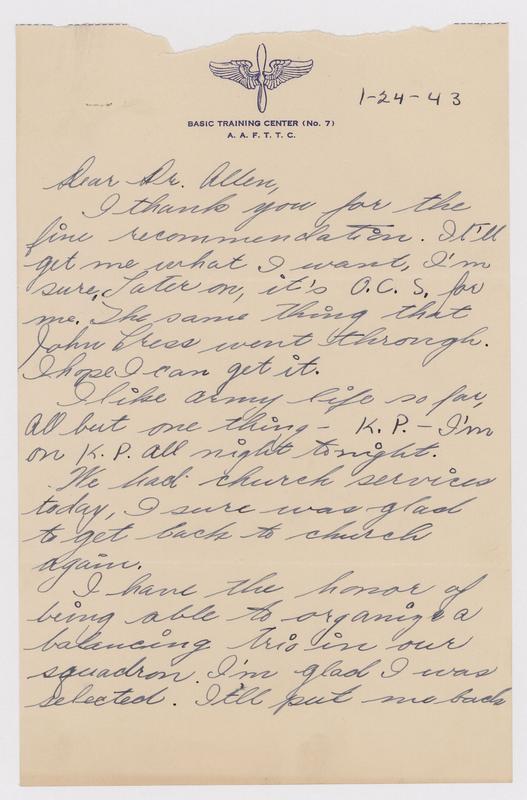 1-24-43
BASIC TRAINING CENTER (No. 7)
A. A. F. T. T. C.
Dear Dr. Allen,
I thank you for the
fine recommendation. It'll
get me what I want, I'm
sure, Later on, it's O.C.S. for
me. The same thing that
John Cress went through.
I hope I can get it.
I like army life so far,
all but one thing - K.P. - I'm
on K.P. all night tonight.
We had church services
today, I sure was glad
to get back to church
again.
I have the honor of
being able to organize a
balancing trio in our
squadron. I'm glad I was
selected. It'll put me back